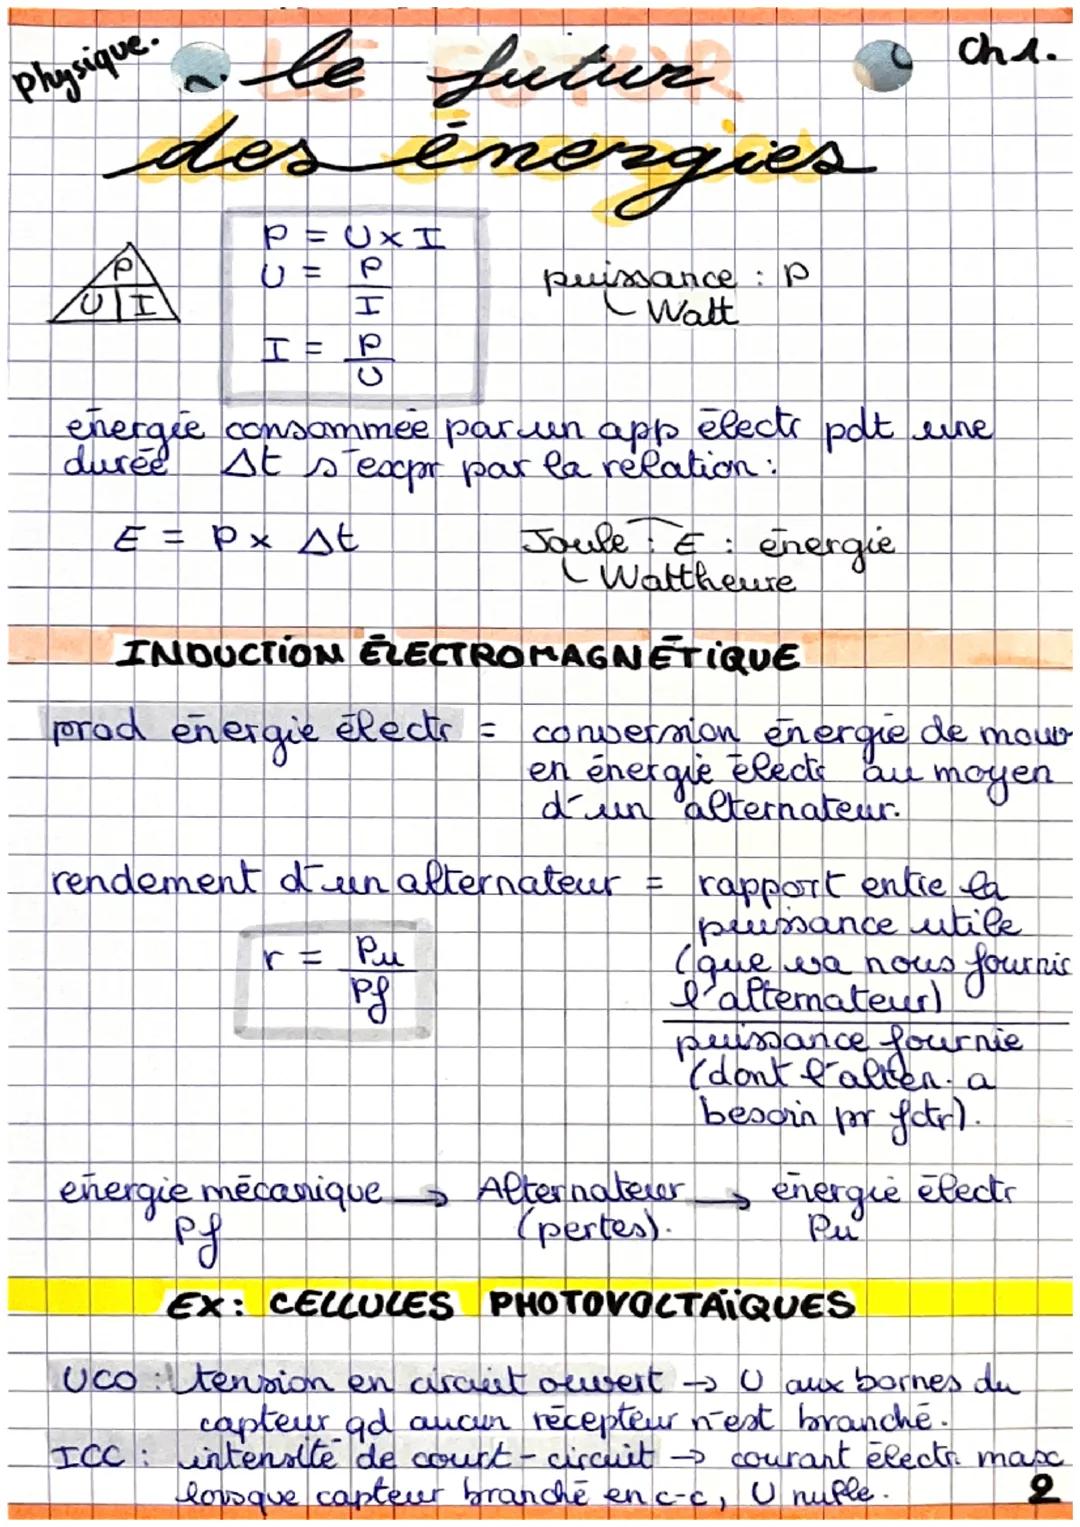 Physique.
LE FUTUR
le futur
Ch 1.
des énergies
P
U I
P = U x I
U = P
I
I = P
U
puissance : P
Watt
énergie consommée par un app électr pdt une
durée Δt s'expr par la relation :
E = P x Δt
Joule : E : énergie
Wattheure
INDUCTION ÉLECTROMAGNÉTIQUE
prod énergie électr = conversion énergie de mouv
en énergie électr au moyen
d'un alternateur.
rendement d'un alternateur = rapport entre la
puissance utile
(que va nous fournir
l'alternateur)
puissance fournie
(dont l'alter. a
besoin pr fctr).
r = Pu
Pf
énergie mécanique → Alternateur → énergie électr
Pf (pertes). Pu
EX : CELLULES PHOTOVOLTAÏQUES
UCO : tension en circuit ouvert → U aux bornes du
capteur qd aucun récepteur n'est branché.
ICC : intensité de court-circuit → courant électr. max
lorsque capteur branché en c-c, U nulle.
2